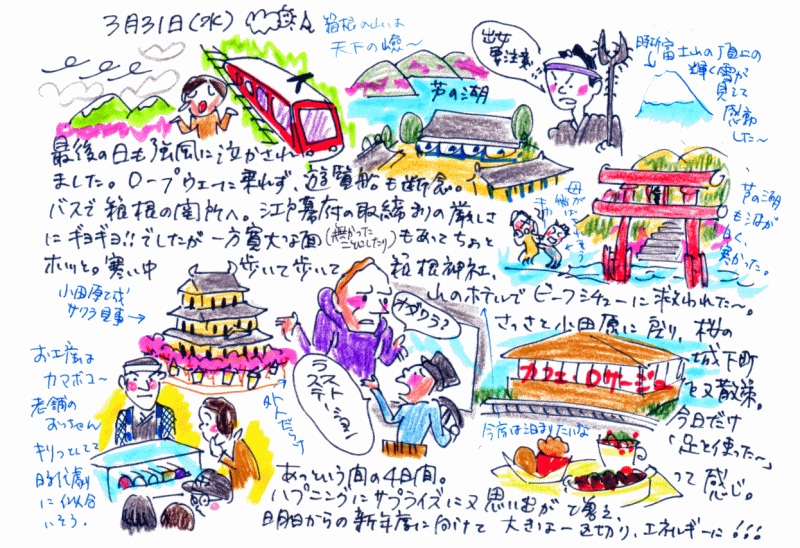 3月31日(水)
箱根の山は
天下の嶮〜
芦の湖
出女
要注意!!
富士山の頂上の
輝く雪が
見えて
感動
した〜
最後の日も強風に泣かされ
ました。ロープウェーに乗れず、遊覧船も断念。
バスで箱根の関所へ。江戸幕府の取締まりの厳しさ
にギョギョ!!でしたが一方寛大な面もあってちょっと
ホッと。寒い中 歩いて歩いて 箱根神社、
山のホテルでビーフシチューに救われた〜。
さっさと小田原に戻り、桜の
城下町
を又散策。
今日だけ
「足を使った〜」
って感じ。
芦の湖
も泊が
白く、
寒かった。
小田原城
サクラ見事→
ナダワラ?
ラスト
ステーション!
外人だらけ
カフェ・ロサージュ
今度は泊まりたいな
お土産は
カマボコ〜
老舗の
おっちゃん
キリっとしてて
時代劇
に似合
いそう。
あっという間の4日間。
ハプニングにサプライズに又思い出が増え
明日からの新年度に向けて 大きな一区切り、エネルギーに!!!